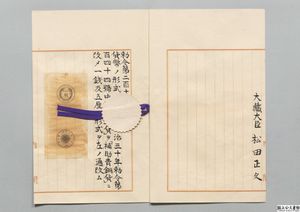 大蔵大臣 松田正久
勅令第二百十
貨幣ノ形式
治三十年勅令第
百四十四号中
貨ヲ補助貨銅貨ニ
改メ一銭及五厘ノ形式ヲ左ノ通改ム
国立公文書館